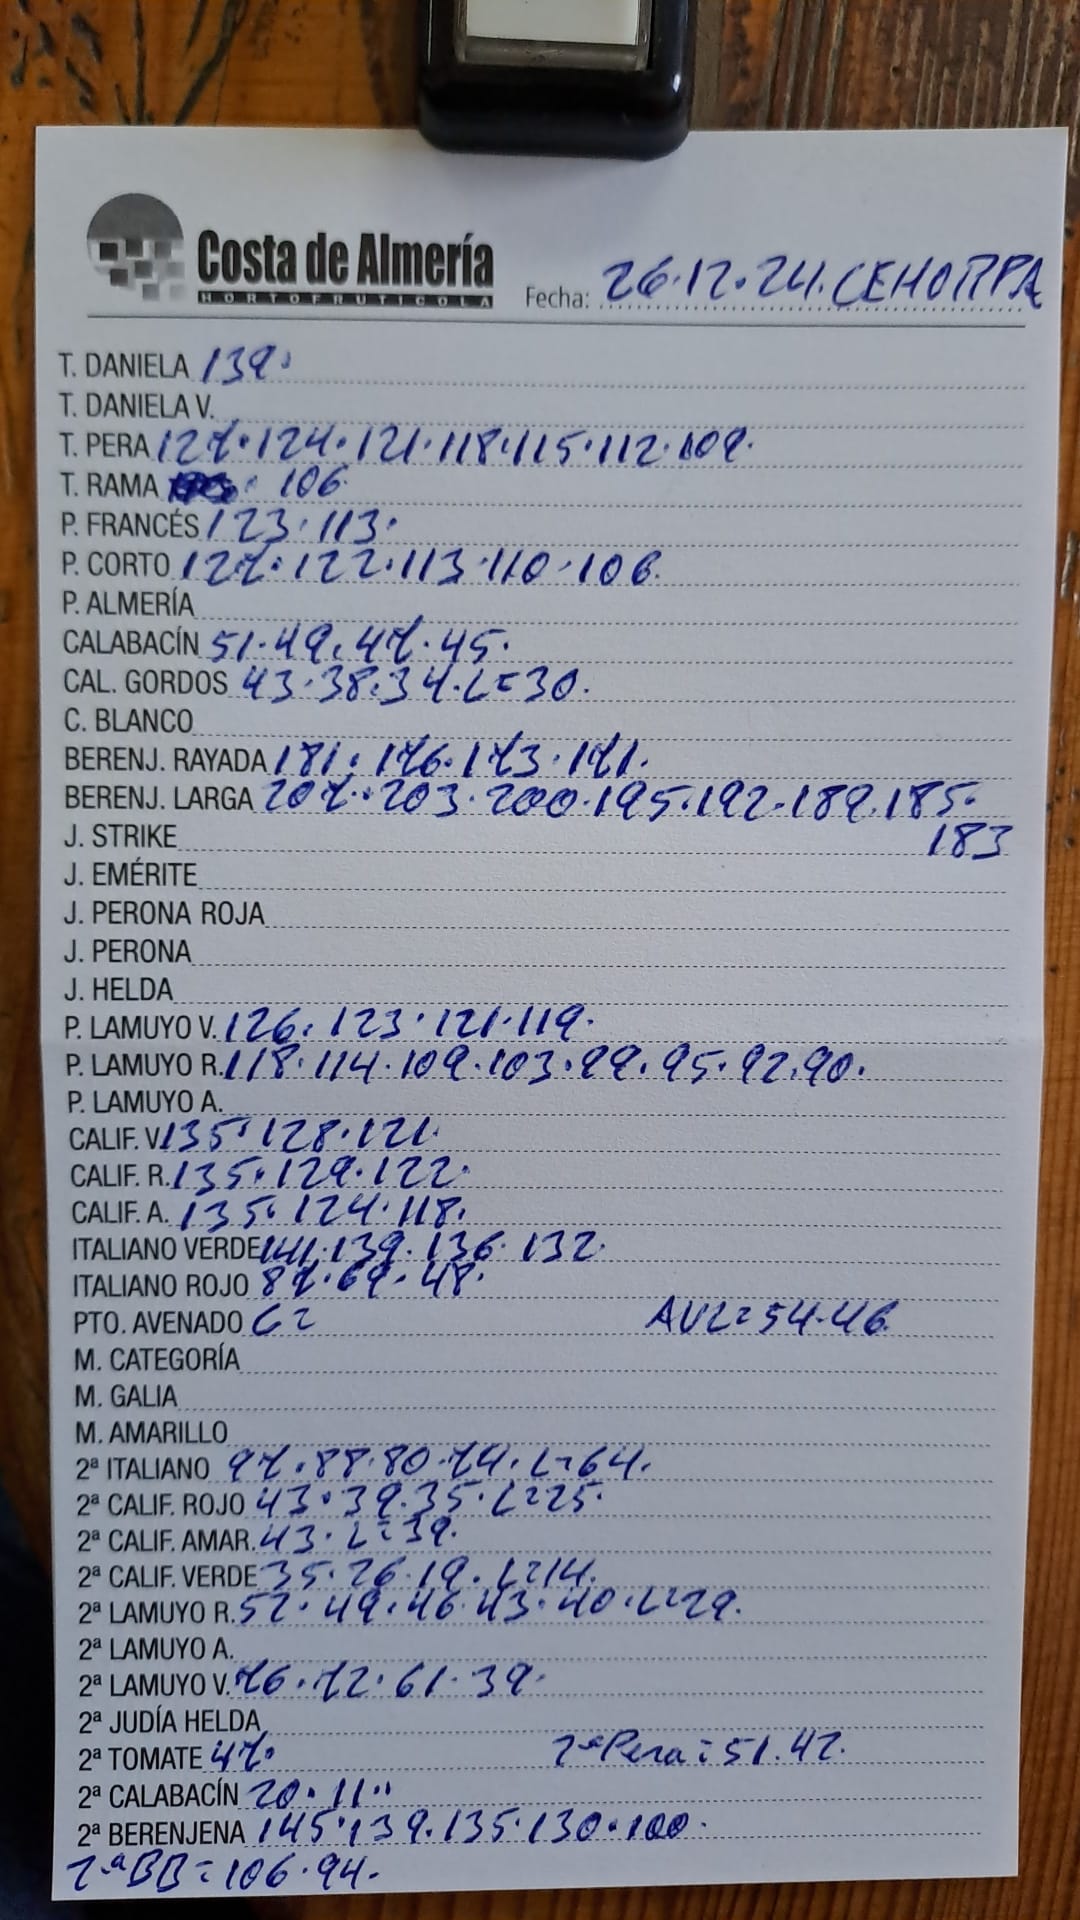 Costa de Almería
HORTOFRUTICOLA
Fecha: 26.12.24. CEHORPA
T. DANIELA 139.
T. DANIELA V.
T. PERA 127.124.121.118.115.112.109.
T. RAMA 106
P. FRANCÉS 123.113.
P. CORTO 127.122.113.110.106.
P. ALMERÍA
CALABACÍN 51.49.47.45.
CAL. GORDOS 43.38.34.L=30.
C. BLANCO
BERENJ. RAYADA 181.176.173.171.
BERENJ. LARGA 207.203.200.195.192.189.185.
183
J. STRIKE
J. EMÉRITE
J. PERONA ROJA
J. PERONA
J. HELDA
P. LAMUYO V. 126.123.121.119.
P. LAMUYO R. 118.114.109.103.99.95.92.90.
P. LAMUYO A.
CALIF. V. 135.128.121.
CALIF. R. 135.129.122.
CALIF. A. 135.124.118.
ITALIANO VERDE 141.139.136.132.
ITALIANO ROJO 87.69.48.
PTO. AVENADO AVL=54.46.
M. CATEGORÍA
M. GALIA
M. AMARILLO
2ª ITALIANO 97.88.80.74.L=64.
2ª CALIF. ROJO 43.39.35.L=25.
2ª CALIF. AMAR. 43.L=39.
2ª CALIF. VERDE 35.26.19.L=14.
2ª LAMUYO R. 52.49.46.43.40.L=29.
2ª LAMUYO A.
2ª LAMUYO V. 76.72.61.39.
2ª JUDÍA HELDA
2ª TOMATE 47. 2ªPera=51.42.
2ª CALABACÍN 20.11.
2ª BERENJENA 145.139.135.130.100.
2ªBB=106.94.